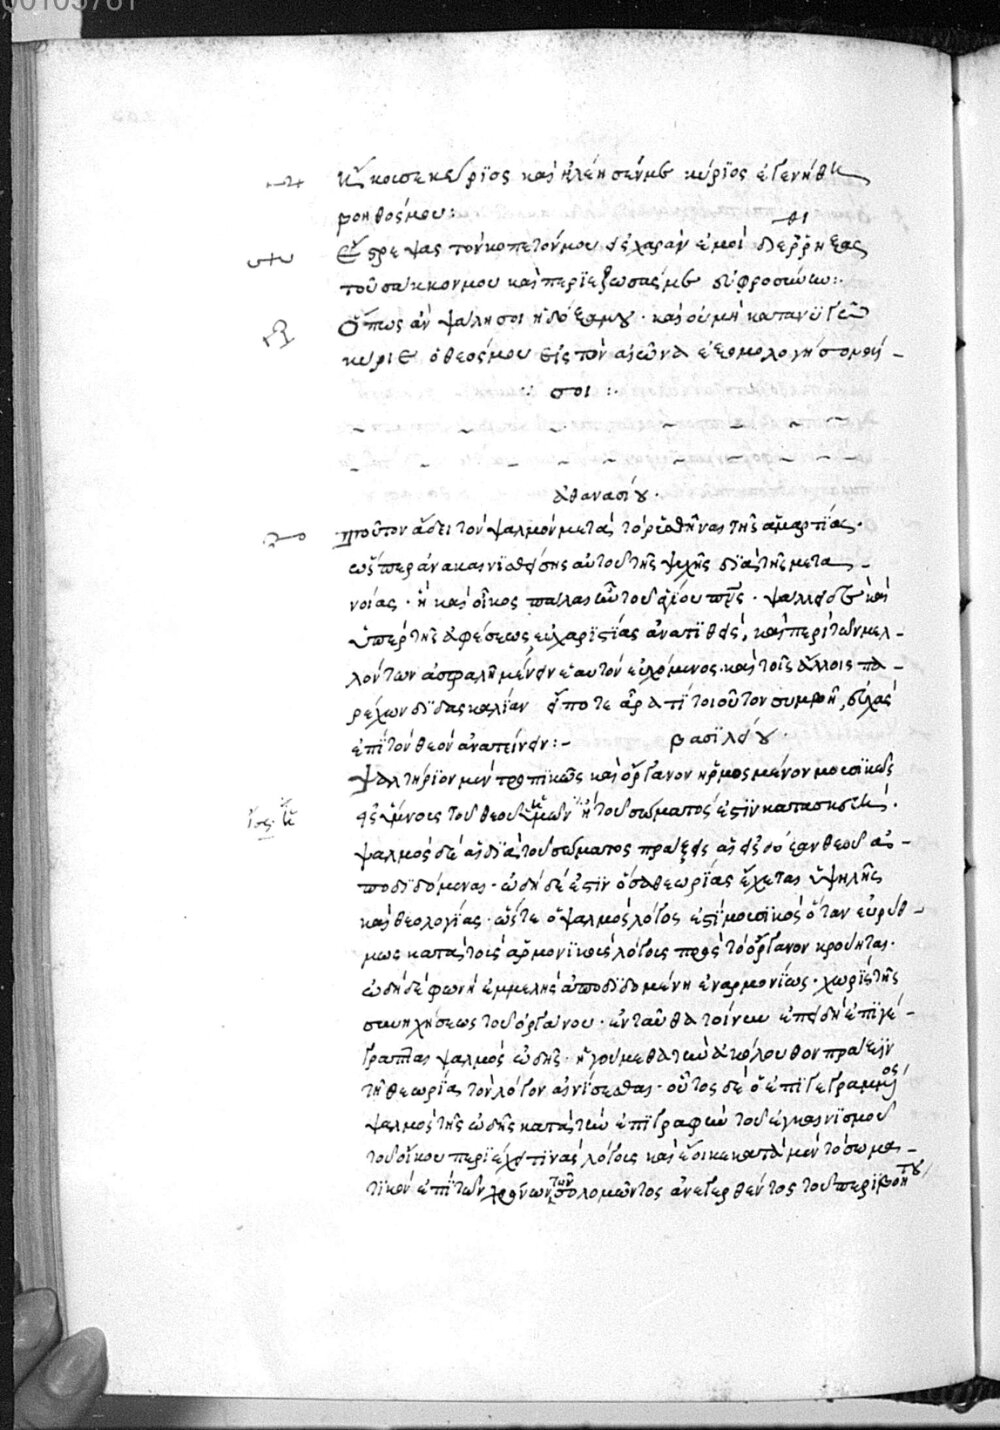 00105761
Ἤκουσε κύριος καὶ ἠλέησέν με κύριος ἐγενήθη
βοηθός μου:
Ἔστρεψας τὸν κοπετόν μου εἰς χαρὰν ἐμοὶ διέρρηξας
τὸν σάκκον μου καὶ περιέζωσάς με εὐφροσύνην:
Ὅπως ἂν ψάλη σοι ἡ δόξα μου· καὶ οὐ μὴ κατανυγῶ
κύριε ὁ θεός μου εἰς τὸν αἰῶνα ἐξομολογήσομαί
σοι:
ἀθανασίου·
τοῦτον ἄδει τὸν ψαλμὸν μετὰ τὸ ῥεθῆναι τῆς ἁμαρτίας·
ὥσπερ ἀνακαινισθείσης αὐτοῦ τῆς ψυχῆς διὰ τῆς μετα
νοίας· ἣ καὶ οἶκος πάλαι ἦν τοῦ ἁγίου πνς· ψάλλει δὲ καὶ
ὑπὲρ τῆς ἀφέσεως εὐχαριστίας ἀνατιθείς, καὶ περὶ τῶν μελ
λόντων ἀσφαλῆ μένειν ἑαυτὸν εὐχόμενος· καὶ τοῖς ἄλλοις πα
ρέχων διδασκαλίαν εἴποτε ἄρα τι τοιοῦτον συμβῆ, εὐχὰς
ἐπὶ τὸν θεὸν ἀνατείνειν:- βασιλείου·
Ψαλτήριον μὲν τροπικῶς καὶ ὄργανον ἡρμοσμένον μουσικῶς
εἰς ὕμνους τοῦ θεοῦ ἡμῶν ἡ τοῦ σώματός ἐστιν κατασκευή·
ψαλμὸς δὲ αἱ διὰ τοῦ σώματος πράξεις αἱ εἰς δόξαν θεοῦ ἀ
ποδιδόμεναι· ὠδὴ δέ ἐστιν ὅσα θεωρίας ἔχεται ὑψηλῆς
καὶ θεολογίας· ὥστε ὁ ψαλμὸς λόγος ἐστὶ μουσικὸς ὅταν εὐρύθ
μως κατὰ τοὺς ἁρμονικοὺς λόγους πρὸς τὸ ὄργανον κρούηται·
ὠδὴ δὲ φωνὴ ἐμμελὴς ἀποδιδομένη ἐναρμονίως· χωρὶς τῆς
συνηχήσεως τοῦ ὀργάνου· ἐνταῦθα τοίνυν ἐπειδὴ ἐπιγέ
γραπται ψαλμὸς ὠδῆς· ἡγούμεθα τὴν ἀκόλουθον πρᾶξιν
τῆ θεωρία τὸν λόγον αἰνίσσεσθαι· οὗτος δὲ ὁ ἐπιγεγραμμένος
ψαλμὸς τῆς ὠδῆς κατὰ τὴν ἐπιγραφὴν τοῦ ἐγκαινισμοῦ
τοῦ οἴκου περιέχει τινὰς λόγους καὶ ἔοικε κατὰ μὲν τὸ σωμα
τικὸν ἐπὶ τῶν χρόνων τῶν σολομῶντος ἀνεγερθέντος τοῦ περιβοήτου